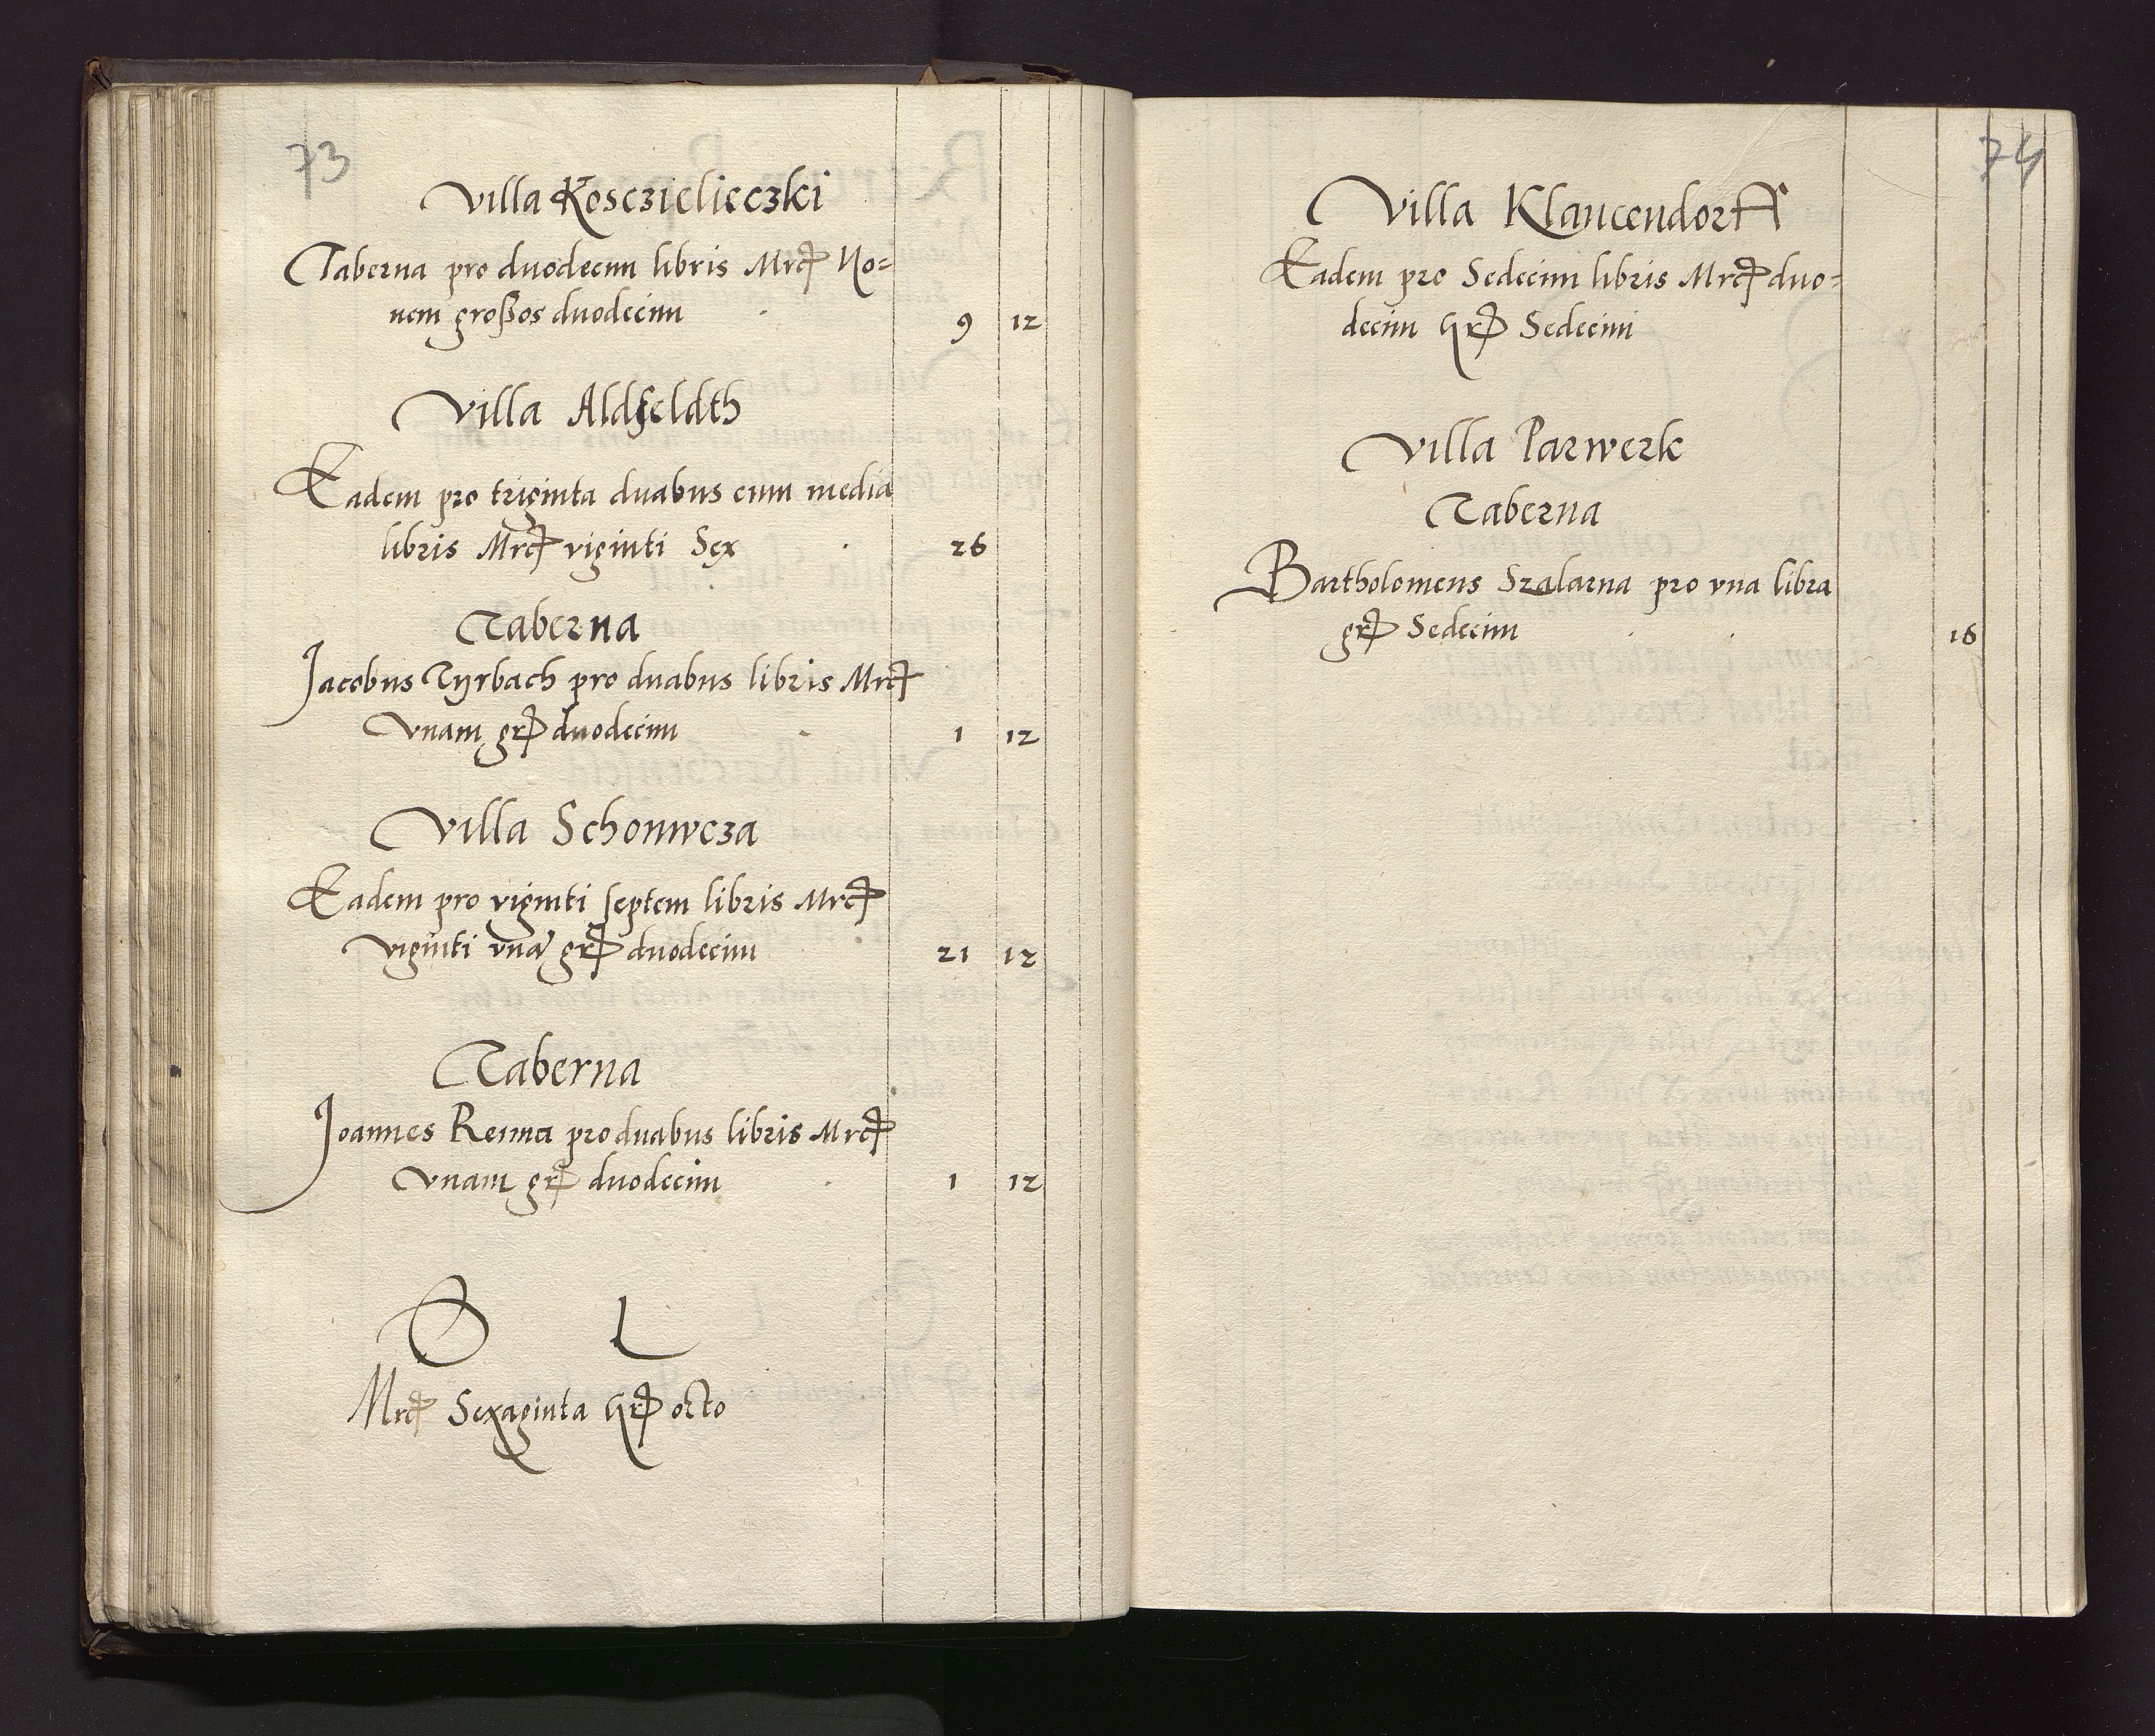 73
Villa Kosczielieczki
Taberna pro duodecim libris Mrcꝭ No=
nem großos duodecim 9 12
Villa Aldfeldth
Eadem pro triginta duabus cum media
libris Mrcꝭ viginti Sex 26
Taberna
Jacobus Tyrbach pro duabus libris Mrcꝭ
Vnam grꝭ duodecim 1 12
Villa Schonwcza
Eadem pro viginti septem libris Mrcꝭ
viginti vnã grꝭ duodecim 21 12
Taberna
Joannes Renna pro duabus libris Mrcꝭ
Vnam grꝭ duodecim 1 12
L
Mrcꝭ Sexaginta grꝭ octo
74
Villa Klancendorff
Eadem pro Sedecim libris Mrcꝭ duo=
decim grꝭ Sedecim
Villa Parwerk
Taberna
Bartholomeus Szalarna pro vna libra
grꝭ Sedecim 16